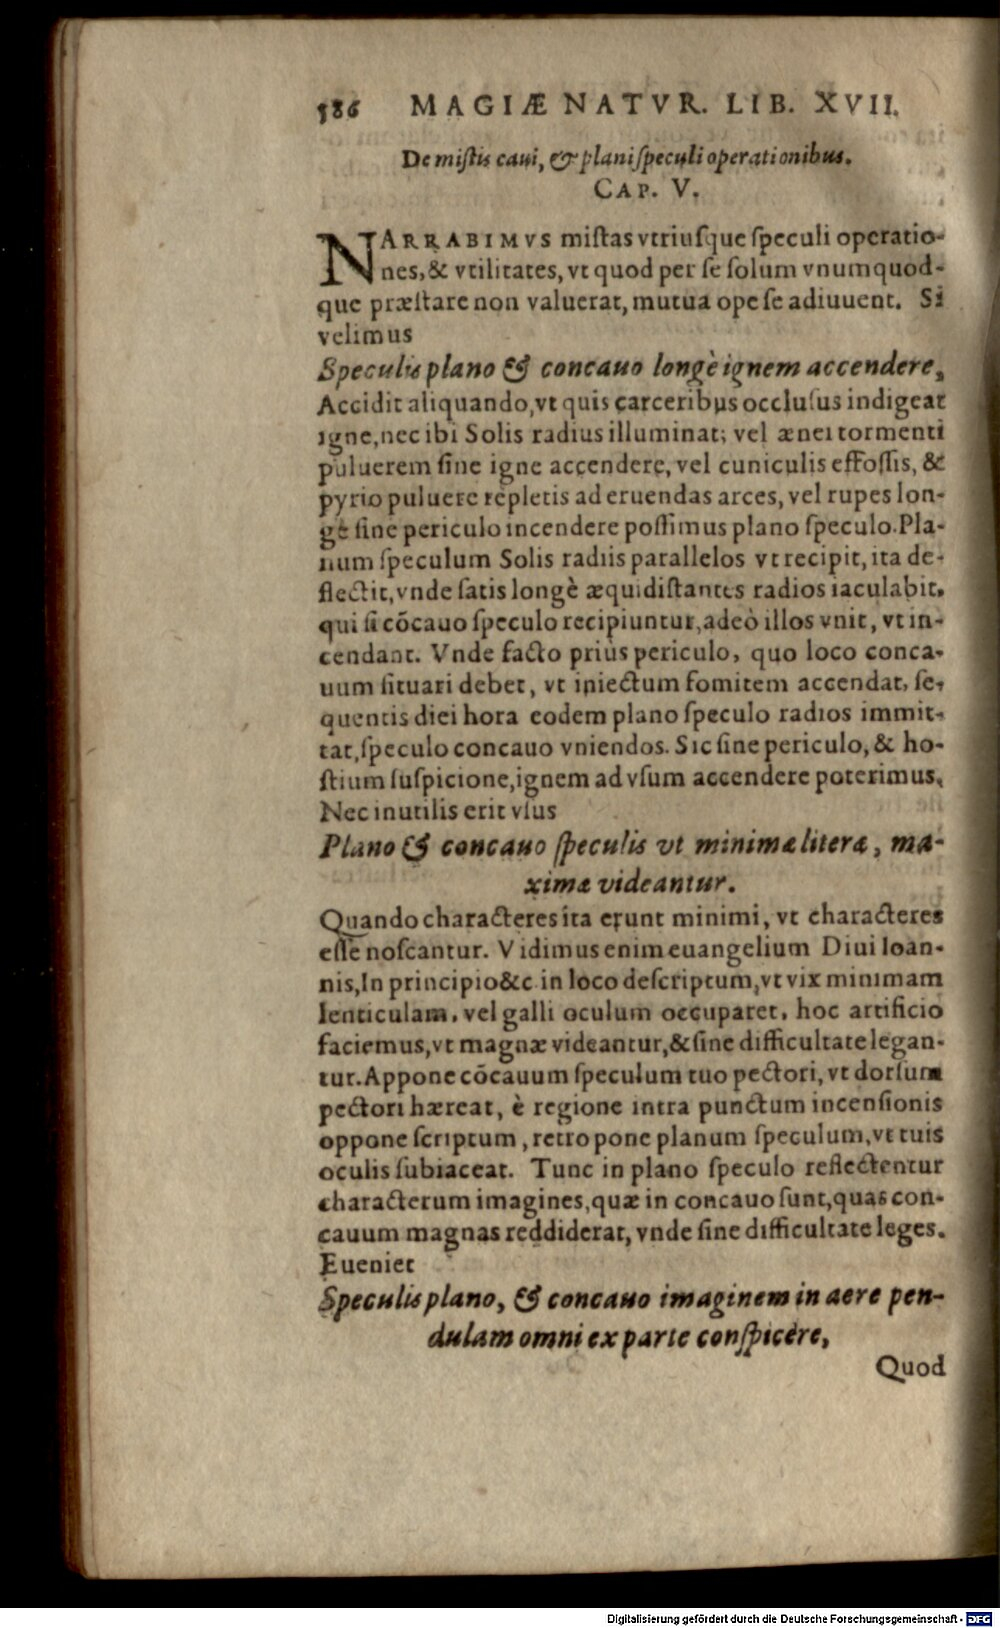 586 MAGIÆ NATVR. LIB. XVII.
De mistis caui, & plani speculi operationibus.
CAP. V.
NARRABIMVS mistas vtriusque speculi operatio-
nes, & vtilitates, vt quod per se solum vnumquod-
que præstare non valuerat, mutua ope se adiuuent. Si
velimus
Speculis plano & concauo longè ignem accendere,
Accidit aliquando, vt quis carceribus occlusus indigeat
igne, nec ibi Solis radius illuminat; vel ænei tormenti
puluerem sine igne accendere, vel cuniculis effossis, &
pyrio puluere repletis ad eruendas arces, vel rupes lon-
gè sine periculo incendere possimus plano speculo. Pla-
num speculum Solis radiis parallelos vt recipit, ita de-
flectit, vnde satis longè æquidistantes radios iaculabit.
qui si cõcauo speculo recipiuntur, adeò illos vnit, vt in-
cendant. Vnde facto priùs periculo, quo loco conca-
uum situari debet, vt iniectum fomitem accendat, se-
quentis diei hora eodem plano speculo radios immit-
tat, speculo concauo vniendos. Sic sine periculo, & ho-
stium suspicione, ignem ad vsum accendere poterimus.
Nec inutilis erit vsus
Plano & concauo speculis vt minimæ literæ, ma-
ximæ videantur.
Quando characteres ita erunt minimi, vt characteres
esse noscantur. Vidimus enim euangelium Diui Ioan-
nis, In principio &c. in loco descriptum, vt vix minimam
lenticulam, vel galli oculum occuparet, hoc artificio
faciemus, vt magnæ videantur, & sine difficultate legan-
tur. Appone cõcauum speculum tuo pectori, vt dorsum
pectori hæreat, è regione intra punctum incensionis
oppone scriptum, retro pone planum speculum, vt tuis
oculis subiaceat. Tunc in plano speculo reflectentur
characterum imagines, quæ in concauo sunt, quas con-
cauum magnas reddiderat, vnde sine difficultate leges.
Eueniet
Speculis plano, & concauo imaginem in aere pen-
dulam omni ex parte conspicere,
Quod
Digitalisierung gefördert durch die Deutsche Forschungsgemeinschaft - DFG